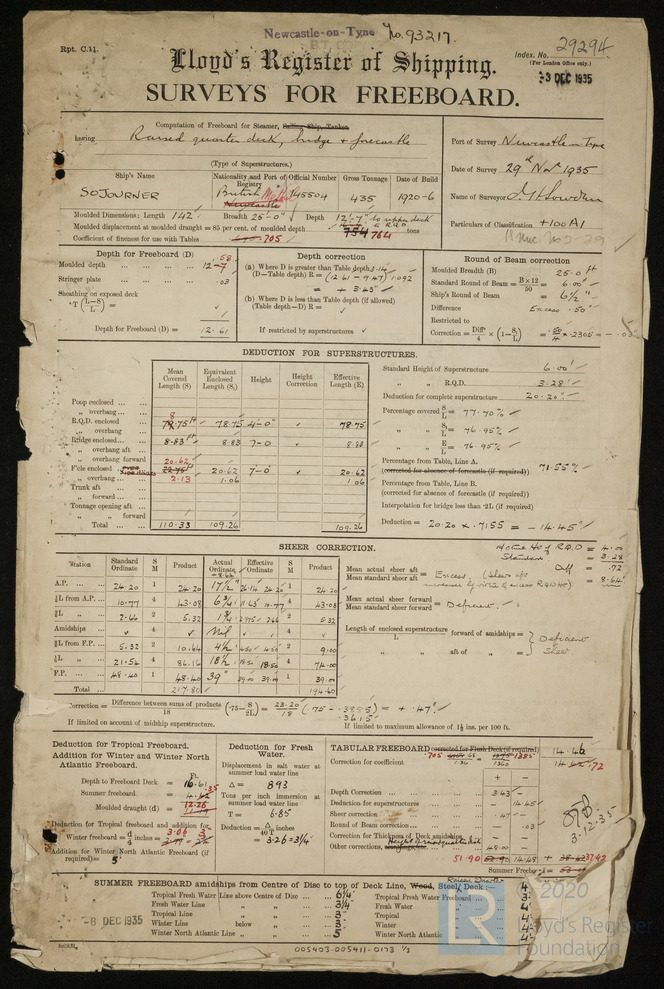 Newcastle-on-Tyne No. 93217.
Rpt. C.11.
Index. No. 29294
(For London Office only.)
Lloyd's Register of Shipping.
3 DEC 1935
SURVEYS FOR FREEBOARD.
Computation of Freeboard for Steamer, Sailing Ship, Tanker
having Raised quarter deck, bridge + forecastle
(Type of Superstructures.)
Port of Survey Newcastle on Tyne
Date of Survey 29th Nov 1935
Name of Surveyor
Particulars of Classification +100A1
Ship's Name
Nationality and Port of Registry
Official Number
Gross Tonnage
Date of Build
SOJOURNER
British
Newcastle
145504
435
1920-6
Moulded Dimensions: Length 142' Breadth 25'-0" Depth 12'-7" to upper deck
Moulded displacement at moulded draught = 85 per cent. of moulded depth 754 764 tons
Coefficient of fineness for use with Tables 705
Depth for Freeboard (D)
Moulded depth 12-7 .58
Stringer plate .03
Sheathing on exposed deck
Depth for Freeboard (D) = 12.61
Depth correction
(a) Where D is greater than Table depth
(D—Table depth) R = (12.61 - 9.47) 1.092
= + 3.43"
(b) Where D is less than Table depth (if allowed)
(Table depth—D) R =
If restricted by superstructures
Round of Beam correction
Moulded Breadth (B) 25.0 ft
Standard Round of Beam = B×12/50 = 6.00"
Ship's Round of Beam = 6½"
Difference Excess .50"
Restricted to
Correction = Diff/4 × (1 - S/L) = .50/4 × .2305 = - .03
DEDUCTION FOR SUPERSTRUCTURES.
Mean Covered Length (S)
Equivalent Enclosed Length (S₁)
Height
Height Correction
Effective Length (E)
Poop enclosed
" overhang
R.Q.D. enclosed 78.75 ft 78.75 4-0" 78.75
" overhang
Bridge enclosed 8.83 ft 8.83 7-0 8.83
" overhang aft
" overhang forward
F'cle enclosed 20.62 20.62 7-0" 20.62
" overhang 2.13 1.06 1.06
Trunk aft
" forward
Tonnage opening aft
" " forward
Total 110.33 109.26 109.26
Standard Height of Superstructure 6.00'
" " R.Q.D. 3.28'
Deduction for complete superstructure 20.20"
Percentage covered S/L = 77.70%
" S₁/L = 76.95%
" E/L = 76.95%
Percentage from Table, Line A.
(corrected for absence of forecastle (if required)) 71.55%
Percentage from Table, Line B.
(corrected for absence of forecastle (if required))
Interpolation for bridge less than ·2L (if required)
Deduction = 20.20 x .7155 = - 14.45"
SHEER CORRECTION.
Station
Standard Ordinate
S M
Product
Actual Ordinate
Effective Ordinate
S M
Product
A.P. 24.20 1 24.20 17½" 26.14 24.20 1 24.20
⅙L from A.P. 10.77 4 43.08 6¾" 11.63 10.77 4 43.08
⅓L " 2.66 2 5.32 1¾ 2.975 2.66 2 5.32
Amidships 4 Nil 4
⅓L from F.P. 5.32 2 10.64 4½" 4.50 4.50 2 9.00
⅙L " 21.54 4 86.16 18½" 18.50 18.50 4 74.00
F.P. 48.40 1 48.40 39" 39.00 39.00 1 39.00
Total 217.80 194.60
Actual Ht of R.Q.D = 4.00
Standard = 3.28
Diff = .72
= 8.64"
Mean actual sheer aft
Mean standard sheer aft = Excess
Mean actual sheer forward
Mean standard sheer forward = Deficient.
Length of enclosed superstructure/L forward of amidships = Deficient
" " aft of " = sheer
Correction = Difference between sums of products/18 (·75 - S/2L) = 23.20/18 (.75 - .3885) = + .47"
.3615
If limited on account of midship superstructure.
If limited to maximum allowance of 1½ ins. per 100 ft.
Deduction for Tropical Freeboard.
Addition for Winter and Winter North Atlantic Freeboard.
Ft.
Depth to Freeboard Deck =
Summer freeboard =
Moulded draught (d) = 12.26
Deduction for Tropical freeboard and addition for
Winter freeboard = d/4 inches = 3.06 3
Addition for Winter North Atlantic Freeboard (if required) = 5
Deduction for Fresh Water.
Displacement in salt water at summer load water line
Δ = 893
Tons per inch immersion at summer load water line
T = 6.85
Deduction = Δ/40T inches
= 3.26 = 3¼"
TABULAR FREEBOARD corrected for Flush Deck (if required) 14.46
Correction for coefficient 705 1385 / 1360 14.72
+ -
Depth Correction 3.43 -
Deduction for superstructures - 14.45
Sheer correction .47 -
Round of Beam correction - .03
Correction for Thickness of Deck amidships - -
Other corrections, Height of raised quarter deck 48.00 -
51.90 14.48 + 37.42
Summer Freeboard =
3.12.35
SUMMER FREEBOARD amidships from Centre of Disc to top of Deck Line, Wood, Steel, Deck:
Tropical Fresh Water Line above Centre of Disc 6¼"
Fresh Water Line " " 3¼
Tropical Line " " 3
Winter Line below " 3
Winter North Atlantic Line " " 5
Tropical Fresh Water Freeboard
Fresh Water "
Tropical "
Winter "
Winter North Atlantic "
-6 DEC 1935
005403-005411-0173 1/2
LR
© 2020
Lloyd's Register
Foundation